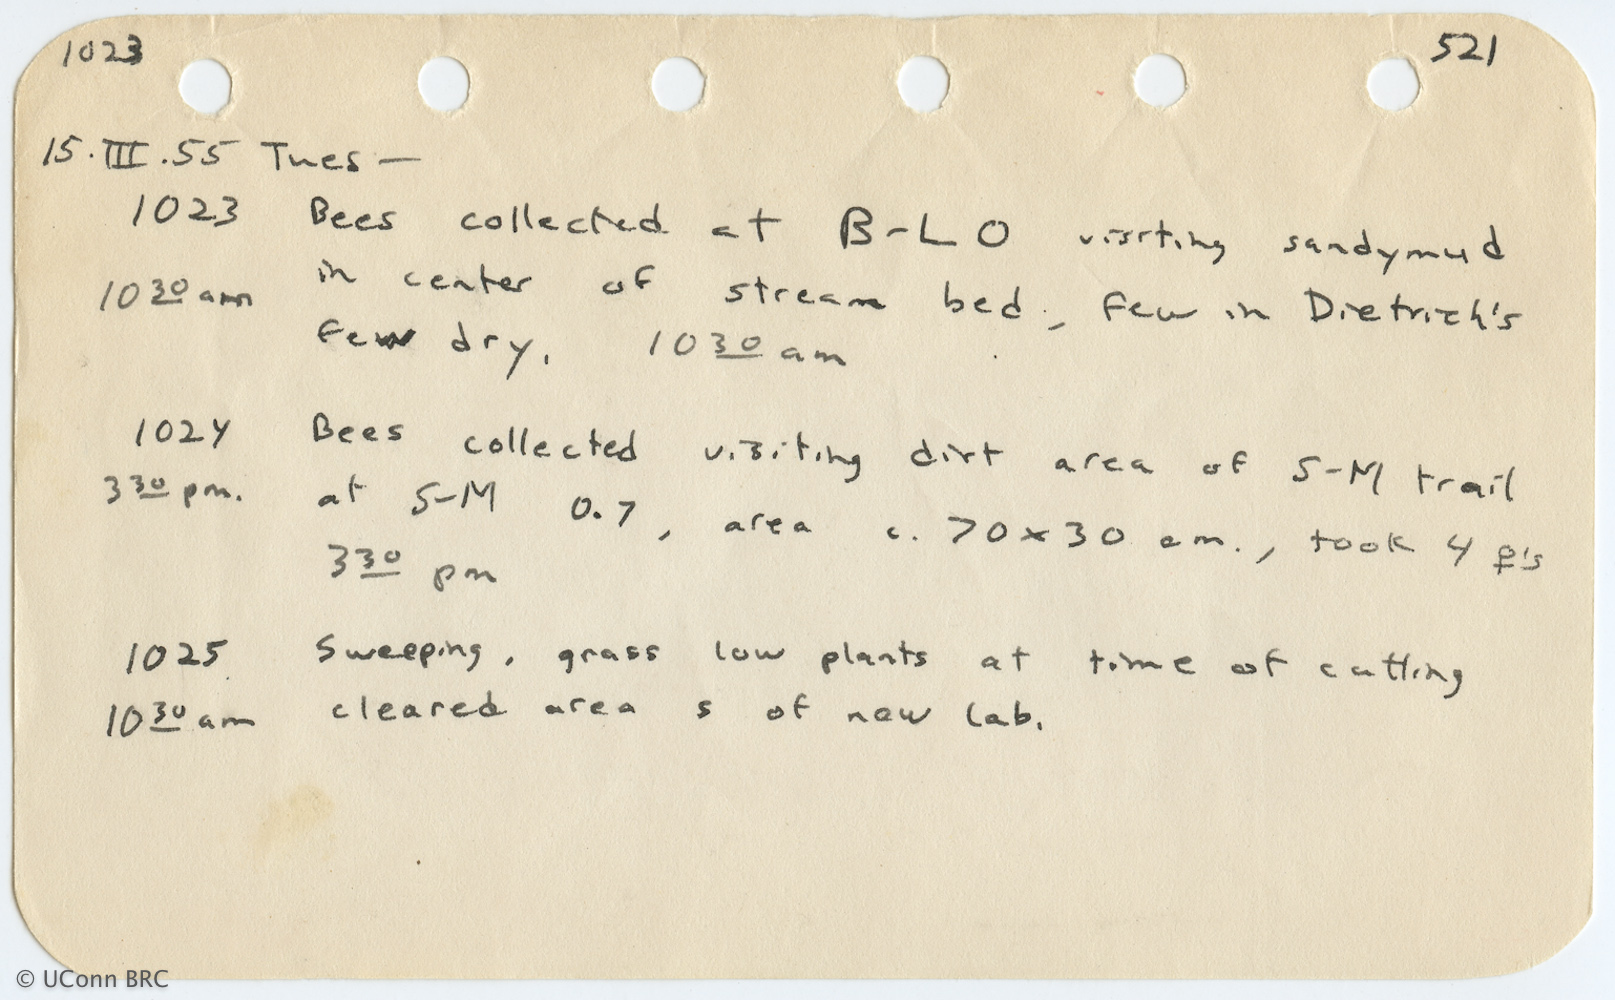 1023 521
15.III.55 Tues —
1023 Bees collected at B-LO visiting sandymud
10 30 am in center of stream bed, few in Dietrich's
few dry. 10 30 am
1024 Bees collected visiting dirt area of S-M trail
3 30 pm. at S-M 0.7, area c. 70 x 30 cm., took 4 ♀'s
3 30 pm
1025 Sweeping, grass low plants at time of cutting
10 30 am cleared area s of new lab.
© UConn BRC